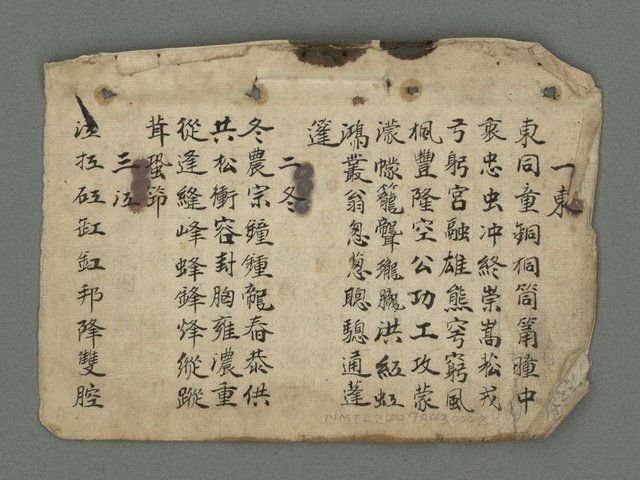 一東
東同童銅桐筒箾瞳中
衷忠虫冲終崇嵩松戎
弓躬宮融雄熊穹窮風
楓豐隆空公功工攻蒙
濛幪籠聾瓏朧洪紅虹
鴻叢翁怱蔥聰驄通蓬
篷
二冬
冬農宗鐘鍾龍舂恭供
共松衝容封胸雍濃重
從逢縫峰蜂鋒烽縱蹤
茸蛩筇
三江
江扛矼缸缸邦降雙腔
NMTL2